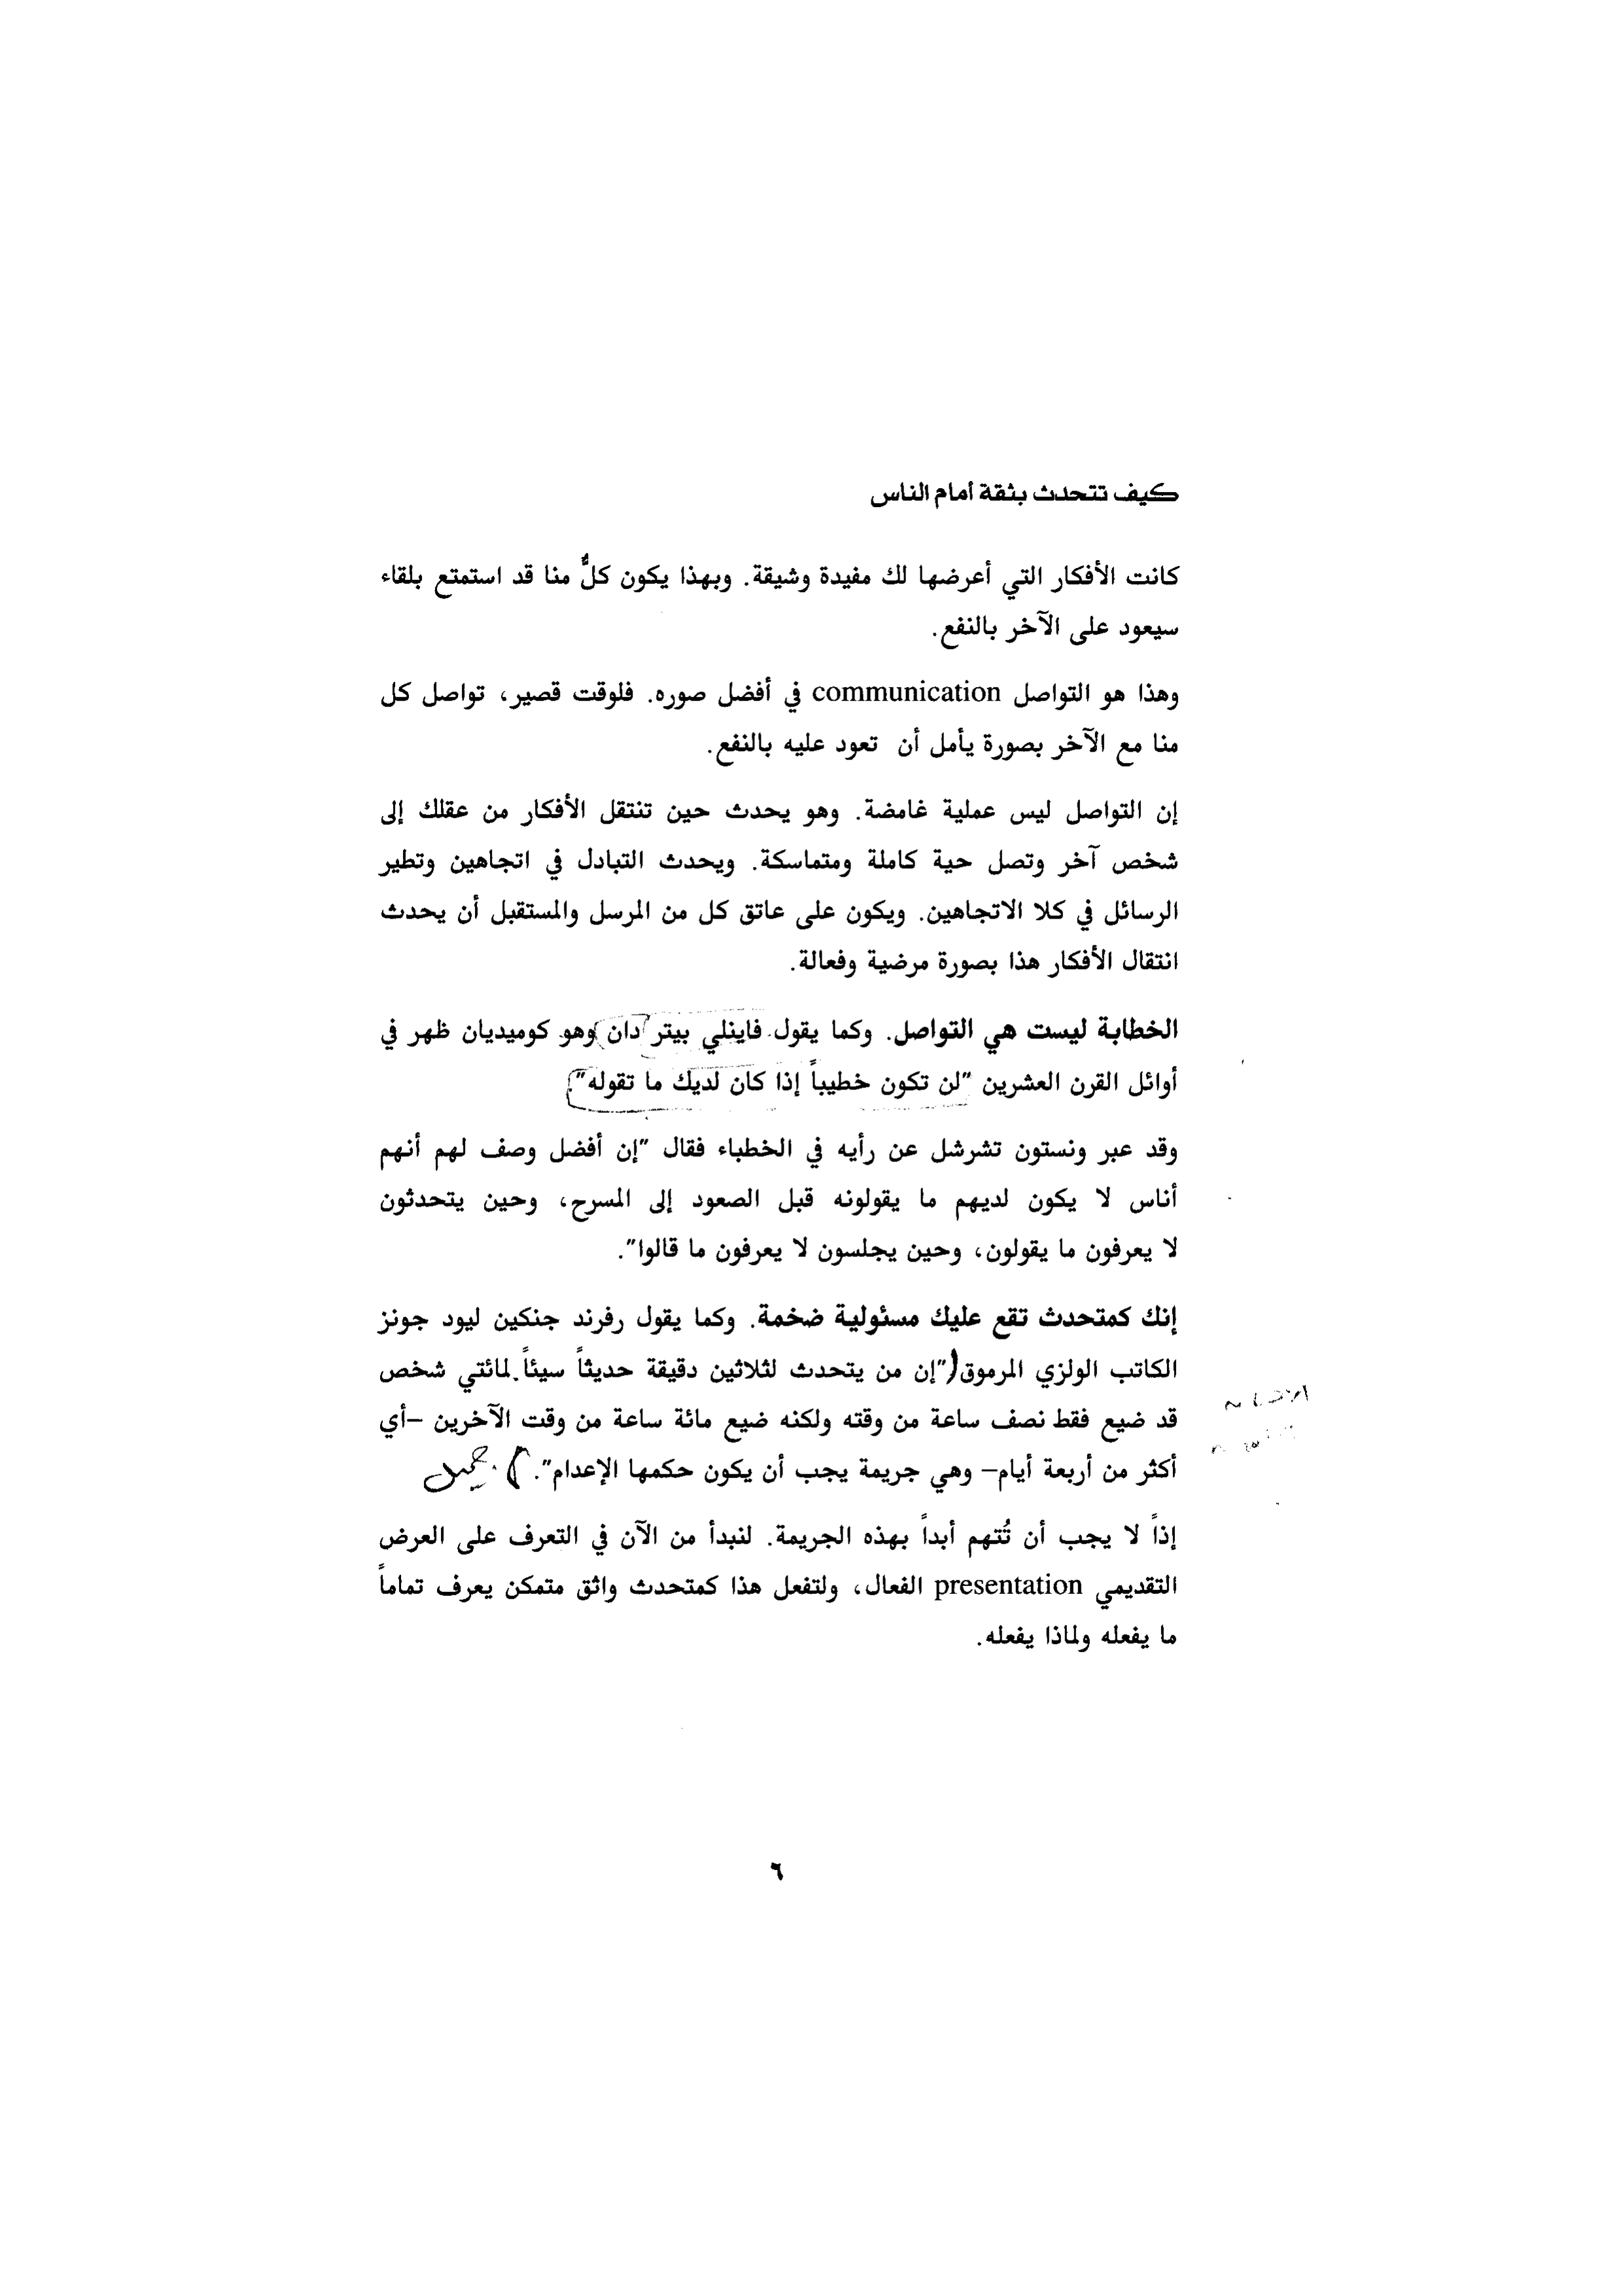 كيف تتحدث بثقة أمام الناس
كانت الأفكار التي أعرضها لك مفيدة وشيقة. وبهذا يكون كلٌّ منا قد استمتع بلقاء
سيعود على الآخر بالنفع.
وهذا هو التواصل communication في أفضل صوره. فلوقت قصير، تواصل كل
منا مع الآخر بصورة يأمل أن تعود عليه بالنفع.
إن التواصل ليس عملية غامضة. وهو يحدث حين تنتقل الأفكار من عقلك إلى
شخص آخر وتصل حية كاملة ومتماسكة. ويحدث التبادل في اتجاهين وتطير
الرسائل في كلا الاتجاهين. ويكون على عاتق كل من المرسل والمستقبل أن يحدث
انتقال الأفكار هذا بصورة مرضية وفعالة.
الخطابة ليست هي التواصل. وكما يقول فاينلي بيتر دان وهو كوميديان ظهر في
أوائل القرن العشرين "لن تكون خطيباً إذا كان لديك ما تقوله".
وقد عبر ونستون تشرشل عن رأيه في الخطباء فقال "إن أفضل وصف لهم أنهم
أناس لا يكون لديهم ما يقولونه قبل الصعود إلى المسرح، وحين يتحدثون
لا يعرفون ما يقولون، وحين يجلسون لا يعرفون ما قالوا".
إنك كمتحدث تقع عليك مسئولية ضخمة. وكما يقول رفرند جنكين ليود جونز
الكاتب الولزي المرموق ("إن من يتحدث لثلاثين دقيقة حديثاً سيئاً لمائتي شخص
قد ضيع فقط نصف ساعة من وقته ولكنه ضيع مائة ساعة من وقت الآخرين –أي
أكثر من أربعة أيام– وهي جريمة يجب أن يكون حكمها الإعدام".) جميل
إذاً لا يجب أن تُتهم أبداً بهذه الجريمة. لنبدأ من الآن في التعرف على العرض
التقديمي presentation الفعال، ولتفعل هذا كمتحدث واثق متمكن يعرف تماماً
ما يفعله ولماذا يفعله.
٦